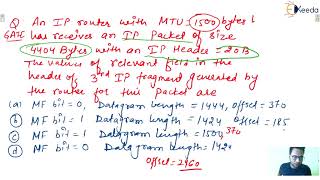 Ekeeda
Q An IP router with MTU = 1500 bytes
GATE has receives an IP Packet of size
4404 Bytes with an IP Header = 20B
The values of relevant field in the
header of 3rd IP fragment generated by
the router for this packet are
(a) MF bit = 0, Datagram length = 1444, offset = 370
(b) MF bit = 1 Datagram length = 1424 offset = 185
(c) MF bit = 1 Datagram length = 1500, 370
(d) MF bit = 0 Datagram length = 1420
offset = 2960